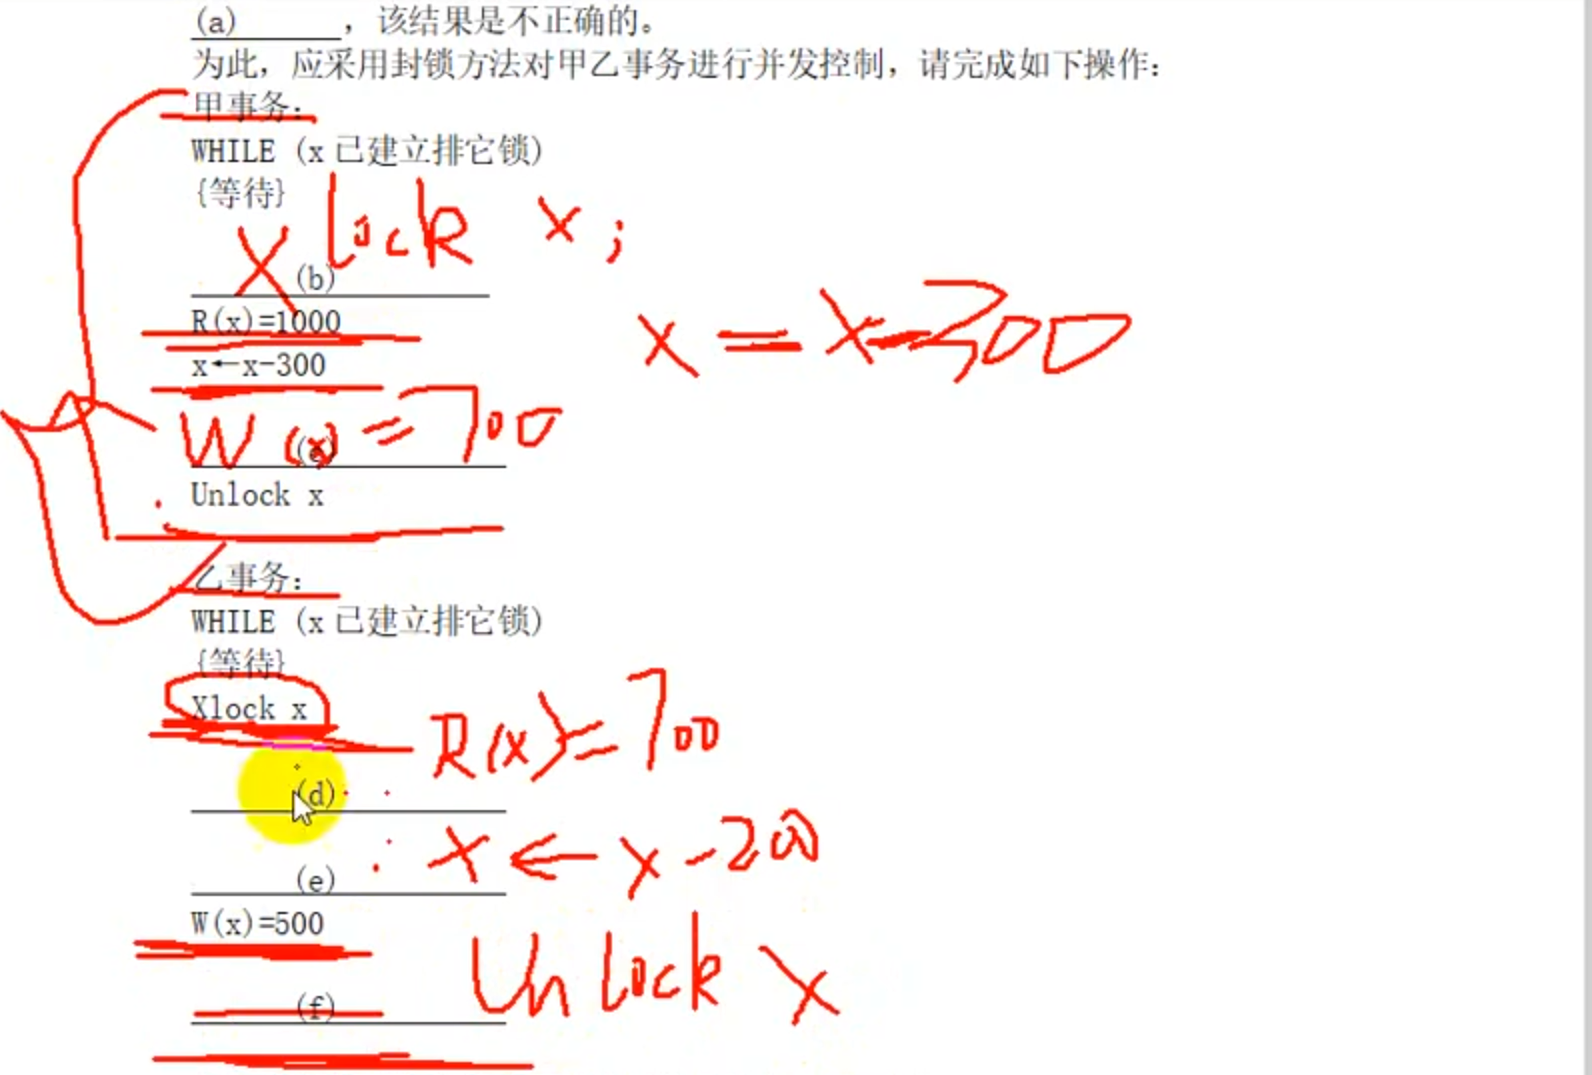 (a) ，该结果是不正确的。
为此，应采用封锁方法对甲乙事务进行并发控制，请完成如下操作：
甲事务：
WHILE (x 已建立排它锁)
{等待}
X lock x ;
(b)
R(x)=1000
x = x-300
x←x-300
W (x) = 700
Unlock x
乙事务：
WHILE (x 已建立排它锁)
{等待}
Xlock x
R(x)=700
(d)
x ← x -200
(e)
W(x)=500
Unlock x
(f)